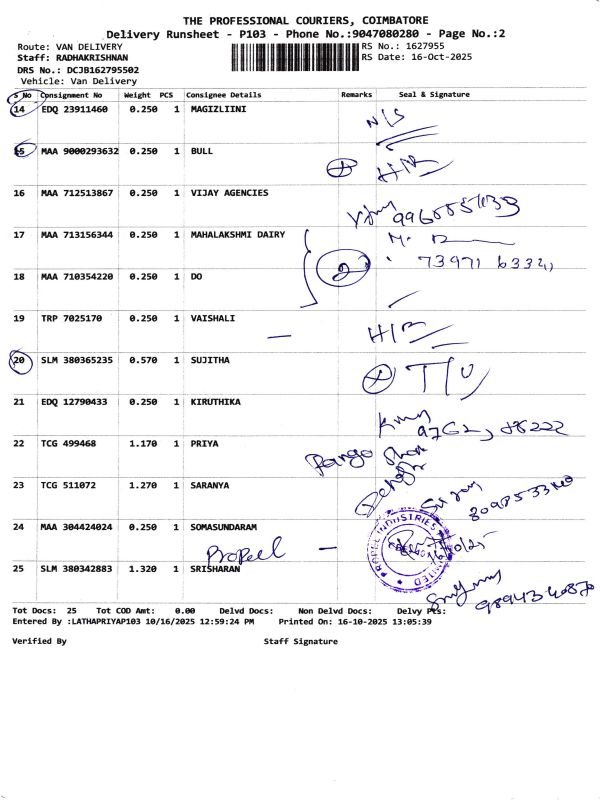 THE PROFESSIONAL COURIERS, COIMBATORE
Delivery Runsheet - P103 - Phone No.:9047080280 - Page No.:2
Route: VAN DELIVERY
RS No.: 1627955
Staff: RADHAKRISHNAN
RS Date: 16-Oct-2025
DRS No.: DCJB162795502
Vehicle: Van Delivery
S No Consignment No Weight PCS Consignee Details Remarks Seal & Signature
14 EDQ 23911460 0.250 1 MAGIZLIINI
N/S
15 MAA 9000293632 0.250 1 BULL
16 MAA 712513867 0.250 1 VIJAY AGENCIES
17 MAA 713156344 0.250 1 MAHALAKSHMI DAIRY
2
18 MAA 710354220 0.250 1 DO
19 TRP 7025170 0.250 1 VAISHALI
20 SLM 380365235 0.570 1 SUJITHA
21 EDQ 12790433 0.250 1 KIRUTHIKA
22 TCG 499468 1.170 1 PRIYA
23 TCG 511072 1.270 1 SARANYA
24 MAA 304424024 0.250 1 SOMASUNDARAM
Propeel
PROPEL INDUSTRIES
LIMITED
25 SLM 380342883 1.320 1 SRISHARAN
Tot Docs: 25 Tot COD Amt: 0.00 Delvd Docs: Non Delvd Docs: Delvy Pts:
Entered By :LATHAPRIYAP103 10/16/2025 12:59:24 PM Printed On: 16-10-2025 13:05:39
Verified By Staff Signature